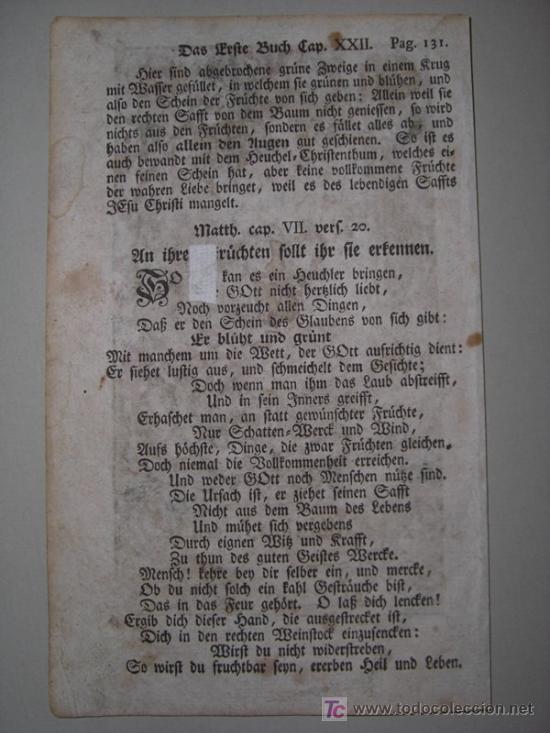 Das Erste Buch Cap. XXII. Pag. 131.
Hier sind abgebrochene grüne Zweige in einem Krug
mit Wasser gefüllet, in welchem sie grünen und blühen, und
also den Schein der Früchte von sich geben: Allein weil sie
den rechten Safft von dem Baum nicht geniessen, so wird
nichts aus den Früchten, sondern es fället alles ab, und
haben also allein den Augen gut geschienen. So ist es
auch bewandt mit dem Heuchel-Christenthum, welches ei-
nen feinen Schein hat, aber keine vollkommene Früchte
der wahren Liebe bringet, weil es des lebendigen Saffts
JEsu Christi mangelt.
Matth. cap. VII. vers. 20.
An ihre rüchten sollt ihr sie erkennen.
SO kan es ein Heuchler bringen,
GOtt nicht hertzlich liebt,
Noch vorzeucht allen Dingen,
Daß er den Schein des Glaubens von sich gibt:
Er blüht und grünt
Mit manchem um die Wett, der GOtt aufrichtig dient:
Er siehet lustig aus, und schmeichelt dem Gesichte;
Doch wenn man ihm das Laub abstreifft,
Und in sein Inners greifft,
Erhaschet man, an statt gewünschter Früchte,
Nur Schatten-Werck und Wind,
Aufs höchste, Dinge, die zwar Früchten gleichen,
Doch niemal die Vollkommenheit erreichen.
Und weder GOtt noch Menschen nütze sind.
Die Ursach ist, er ziehet seinen Safft
Nicht aus dem Baum des Lebens
Und mühet sich vergebens
Durch eignen Witz und Krafft,
Zu thun des guten Geistes Wercke.
Mensch! kehre bey dir selber ein, und mercke,
Ob du nicht solch ein kahl Gesträuche bist,
Das in das Feur gehört. O laß dich lencken!
Ergib dich dieser Hand, die ausgestrecket ist,
Dich in den rechten Weinstock einzusencken:
Wirst du nicht widerstreben,
So wirst du fruchtbar seyn, ererben Heil und Leben.
TC www.todocoleccion.net